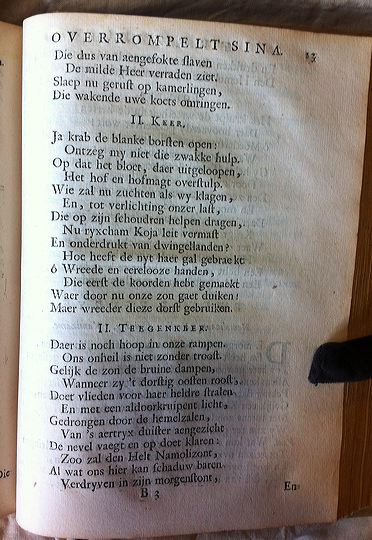 OVERROMPELT SINA. 13
Die dus van aengefokte slaven
De milde Heer verraden ziet.
Slaep nu gerust op kamerlingen,
Die wakende uwe koets omringen.
II. KEER.
Ja krab de blanke borsten open:
Ontzeg my niet die zwakke hulp.
Op dat het bloet, daer uitgeloopen,
Het hof en hofmagt overstulp.
Wie zal nu zuchten als wy klagen,
En, tot verlichting onzer last,
Die op zijn schoudren helpen dragen,
Nu ryxcham Koja leit vermast
En onderdrukt van dwingellanden?
Hoe heeft de nyt haer gal gebraekt
ó Wreede en eerelooze handen,
Die eerst de koorden hebt gemaekt
Waer door nu onze zon gaet duiken!
Maer wreeder dieze dorst gebruiken.
II. TEEGENKEER.
Daer is noch hoop in onze rampen.
Ons onheil is niet zonder troost.
Gelijk de zon de bruine dampen,
Wanneer zy 't dorstig oosten roost,
Doet vlieden voor haer heldre stralen
En met een aldoorkruipent licht,
Gedrongen door de hemelzalen,
Van 's aertryx duister aengezicht
De nevel vaegt en op doet klaren:
Zoo zal den Helt Namolizont,
Al wat ons hier kan schaduw baren.
Verdryven in zijn morgenstont,
B 3 En